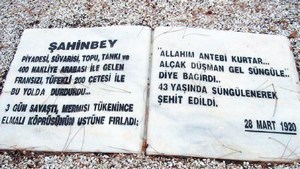 ŞAHİNBEY
PİYADESİ, SÜVARİSİ, TOPU, TANKI ve
400 NAKLİYE ARABASI İLE GELEN
FRANSIZI, TÜFEKLİ 200 ÇETESİ İLE
BU YOLDA DURDURDU...
3 GÜN SAVAŞTI, MERMİSİ TÜKENİNCE
ELMALI KÖPRÜSÜNÜN ÜSTÜNE FIRLADI;
"ALLAHIM ANTEBİ KURTAR...
ALÇAK DÜŞMAN GEL SÜNGÜLE...
DİYE BAĞIRDI..
43 YAŞINDA SÜNGÜLENEREK
ŞEHİT EDİLDİ.
28 MART 1920